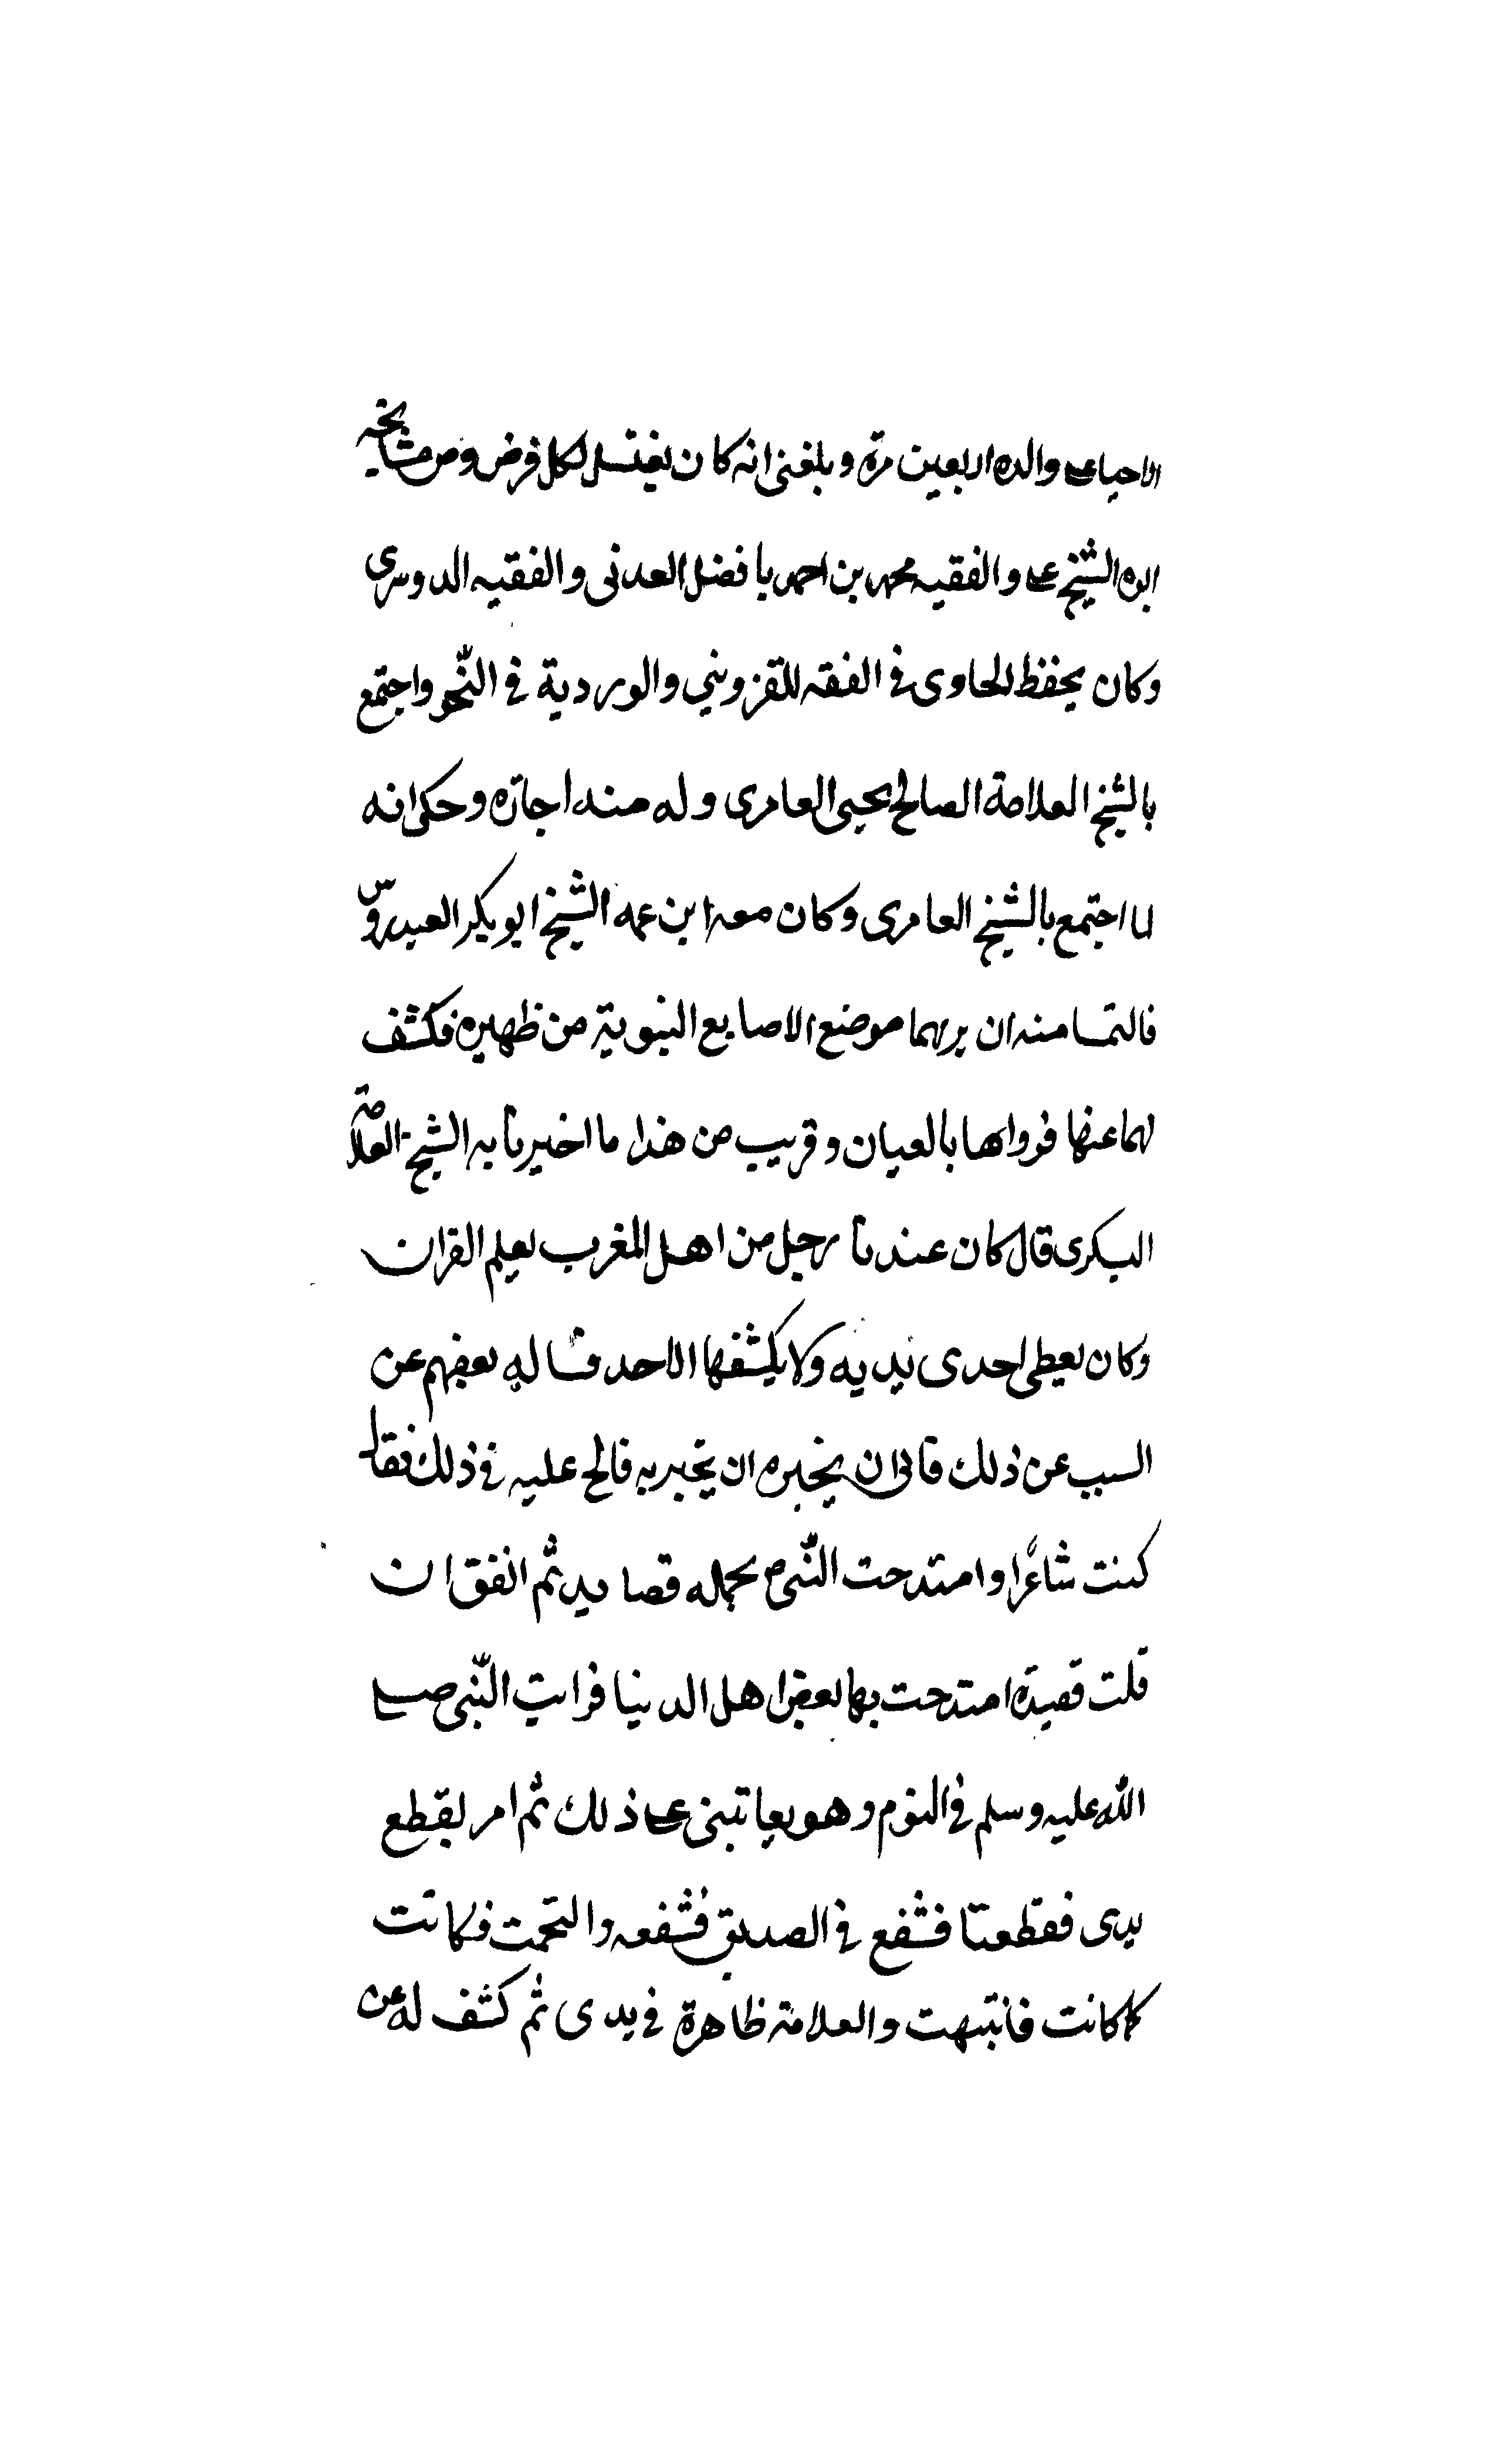 الاحيا على والده اربعين مرة وبلغني انه كان يغتسل لكل فرض ومن مشايخه
ابوه الشيخ على والفقيه محمد بن احمد با فضل العدنى والفقيه الدوسرى
وكان يحفظ الحاوى فى الفقه للقزويني والوردية فى النّحو واجتمع
بالشيخ العلامة الصالح يحيى العامرى وله منه اجازه وحكى انه
لما اجتمع بالشيخ العامرى وكان معه ابن عمه الشيخ ابو بكر العيدروس
فالتمسا منه ان يريهما موضع الاصابع النبوية من ظهره فكشف
لهما عنها فرواها بالعيان وقريب من هذا ما اخبرنا به الشيخ العلامة
البكرى قال كان عندنا رجل من اهل المغرب يعلم القران
وكان يغطى احدى يديه ولا يكشفها لاحد فساله بعضهم عن
السبب عن ذلك فابى ان يخبره ان يخبر به فالح عليه فى ذلك فقال
كنت شاعرًا وامتدحت النّبى ص بجمله قصايد ثم اتفق ان
قلت قصيدة امتدحت بها بعض اهل الدنيا فرايت النّبى صلى
الله عليه وسلم فى النوم وهو يعاتبنى على ذلك ثم امر بقطع
يدى فقطعتا فشفع فى الصديق فشفعه والتحمت فكانت
كما كانت فانتبهت والعلامة ظاهرة فى يدى ثم كشف له عن